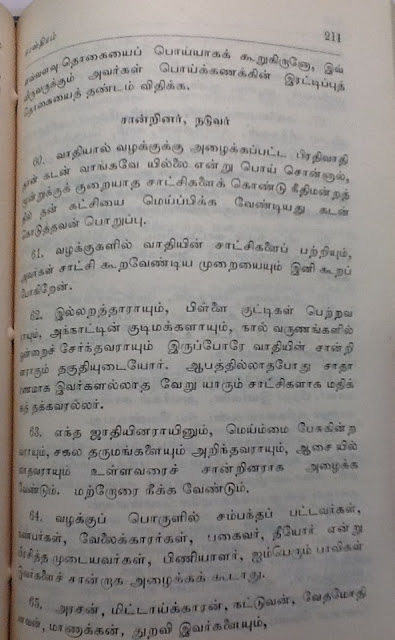 சாஸ்திரம் 211
எவ்வளவு தொகையைப் பொய்யாகக் கூறுகிருனோ, இவ்
விருவருக்கும் அவர்கள் பொய்க்கணக்கின் இரட்டிப்புத்
தொகையைத் தண்டம் விதிக்க.
சான்றினர், நடுவர்
60. வாதியால் வழக்குக்கு அழைக்கப்பட்ட பிரதிவாதி
தான் கடன் வாங்கவே யில்லை என்று பொய் சொன்னால்,
மூன்றுக்குக் குறையாத சாட்சிகளைக் கொண்டு நீதிமன்றத்
தில் தன் கட்சியை மெய்ப்பிக்க வேண்டியது கடன்
கொடுத்தவன் பொறுப்பு.
61. வழக்குகளில் வாதியின் சாட்சிகளைப் பற்றியும்,
அவர்கள் சாட்சி கூறவேண்டிய முறையையும் இனி கூறப்
போகிறேன்.
62. இல்லறத்தாராயும், பிள்ளை குட்டிகள் பெற்றவ
ராயும், அந்நாட்டின் குடிமக்களாயும், நால் வருணங்களில்
ஒன்றைச் சேர்ந்தவராயும் இருப்போரே வாதியின் சான்றி
னராகும் தகுதியுடையோர். ஆபத்தில்லாதபோது சாதா
ரணமாக இவர்களல்லாத வேறு யாரும் சாட்சிகளாக மதிக்
கத் தக்கவரல்லர்.
63. எந்த ஜாதியினராயினும், மெய்ம்மை பேசுகின்ற
வராயும், சகல தருமங்களையும் அறிந்தவராயும், ஆசை யில்
லாதவராயும் உள்ளவரைச் சான்றினராக அழைக்க
வேண்டும். மற்றோரை நீக்க வேண்டும்.
64. வழக்குப் பொருளில் சம்பந்தப் பட்டவர்கள்,
நண்பர்கள், வேலைக்காரர்கள், பகைவர், தீயோர் என்று
பிரசித்த முடையவர்கள், பிணியாளர், ஐம்பெரும் பாவிகள்
இவர்களைச் சான்றாக அழைக்கக் கூடாது.
65. அரசன், மிட்டாய்க்காரன், நட்டுவன், வேதமோதி
னவன், மாணாக்கன், துறவி இவர்களையும்,